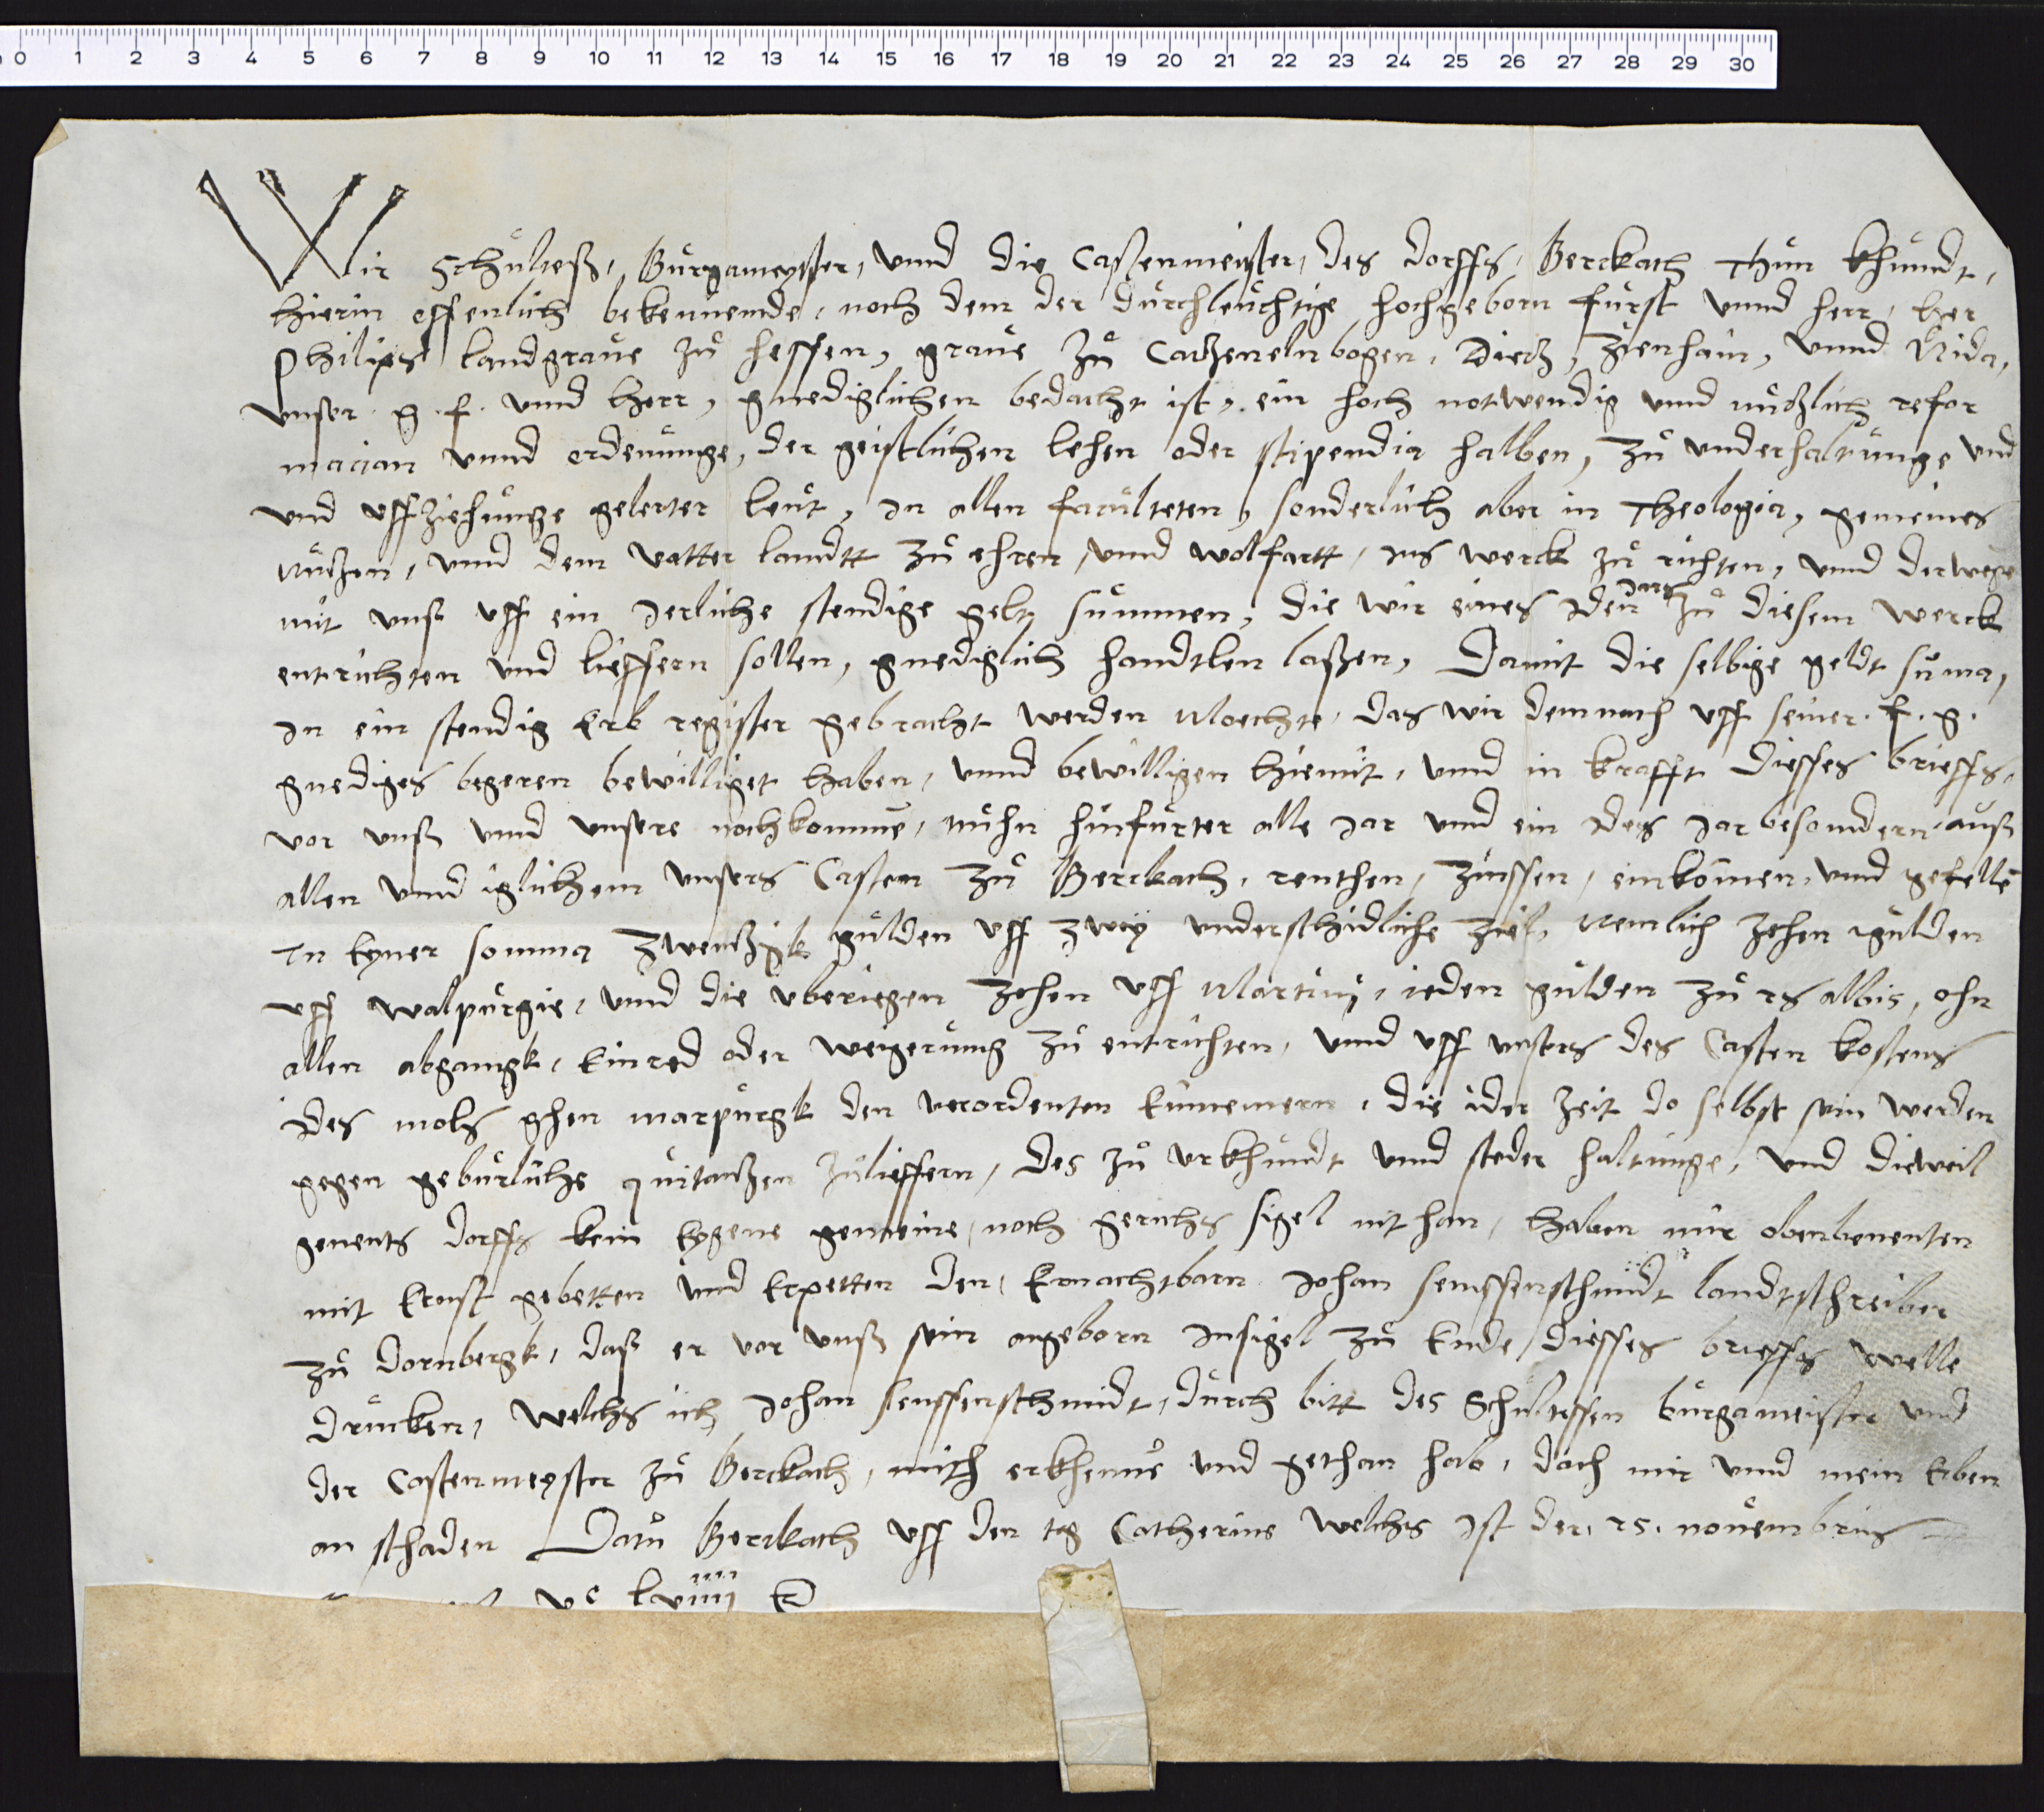 0 1 2 3 4 5 6 7 8 9 10 11 12 13 14 15 16 17 18 19 20 21 22 23 24 25 26 27 28 29 30
Wir Schůlteß, Bůrgameyster, vnnd die Castenmeister, des dorffs, Berckach thůn khůndt,
hierin offenlich bekennende, noch dem der důrchleůchtige hochgeborn fůrst vnnd herr, her
Philips landgraůe zů hessen, graůe zů Catzenelnbogen, Dietz, Zienhain, vnnd Nida,
vnser g. f. vnnd herr, gnediglichen bedacht ist, ein hoch notwendig vnnd nůtzlich refor
macian vnnd ordenůnge, der geistlichen lehen oder stipendia halben, zů vnderhaltůnge vnd
vnd vffziehůnge gelerter leůt, in allen facůlteten, sonderlich aber in Theologia, gemeines
nůtzen, vnnd dem vatter landtt zů ehren, vnnd wolfartt, ins werck zů richten, vnnd derwege
mit vnß vff ein Jerliche stendige gelt sůmmen, die wir eines Iden Jars zů diesem werck
entrichten vnd lieffern sollen, gnediglich handtlen laßen, Damit die selbige geldt sůma,
In ein stendig Erb register gebracht werden Moechte, das wir demnach vff seiner. f. g.
gnediges begeren bewilliget haben, vnnd bewilligen hiemit, vnnd in krafft diesses brieffs,
vor vnß vnnd vnsere nochkomme, nůhn hinfůrter alle Jar vnnd ein Ides Jar besondern, auß
allen vnnd iglichem vnsers Casten zů Berckach, renthen, Zinssen, einkomen, vnnd gefelle
In Eyner somma zwentzigk gůlden vff zwey vnderschidliche ziel, Nemlich zehen gůlden
vff walpůrgie, vnnd die vberiegen zehen vff Martinj, ieden gůlden zů 26 albis, ohn
allen abgangk, Einred oder weigerůng zů entrichten, vnnd vff vnsers des Casten kostens
Ides mols ghen marpůrgk den verordenten Einnemern, die ider Zeit do selbst sein werden
gegen gebůrliche quitantzen zůlieffern, des zů vrkhůndt vnnd steder haltůnge, vnd dieweil
genents dorffs kein Eygene gemeine, noch gerichs sigel nit han, haben mir obenbenenten
mit Ernst gebetten vnnd Erpetten den, Ernachtbarn Johan senssenschmidt landtschreiber
zů Dornbergk, daß er vor vnß sein angeborn Insigel zů Ende, diesses brieffs welle
drůcken, welchs ich Johan senssenschmidt, důrch bitt des Schůltessen bůrgameister vnd
der Castenmeyster zů Berckach, mich erkhenne vnd gethan hab, doch mir vnnd mein Erben
an schaden Datů Berckach vff den tag Catherine welchs Ist der. 25. noůembris
vc lviiij